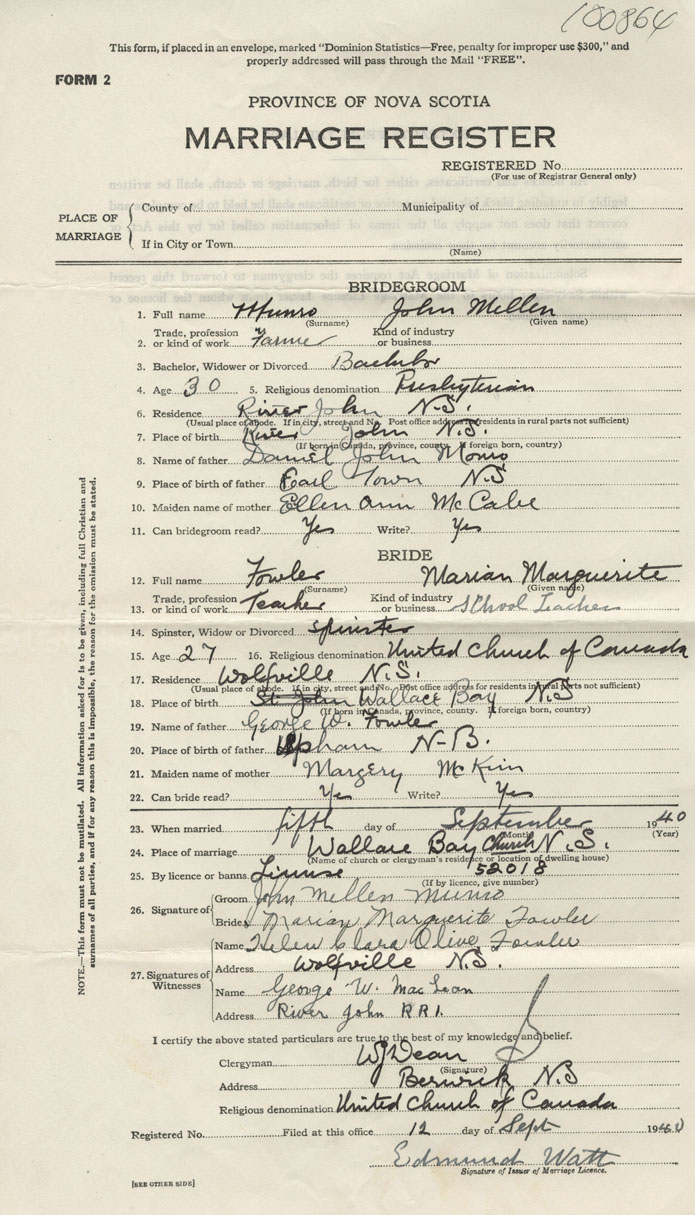 100864
This form, if placed in an envelope, marked "Dominion Statistics—Free, penalty for improper use $300," and
properly addressed will pass through the Mail "FREE".
FORM 2
PROVINCE OF NOVA SCOTIA
MARRIAGE REGISTER
REGISTERED No.
(For use of Registrar General only)
PLACE OF MARRIAGE
County of Municipality of
If in City or Town
(Name)
BRIDEGROOM
1. Full name Munro John Mellen
(Surname) (Given name)
2. Trade, profession or kind of work Farmer Kind of industry or business
3. Bachelor, Widower or Divorced Bachelor
4. Age 30 5. Religious denomination Presbyterian
6. Residence River John N.S.
(Usual place of abode. If in city, street and No. Post office address for residents in rural parts not sufficient)
7. Place of birth River John N.S.
(If born in Canada, province, county. If foreign born, country)
8. Name of father Daniel John Monro
9. Place of birth of father Earl Town NS
10. Maiden name of mother Ellen Ann McCabe
11. Can bridegroom read? Yes Write? Yes
BRIDE
12. Full name Fowler Marian Marguerite
(Surname) (Given name)
13. Trade, profession or kind of work Teacher Kind of industry or business School Teacher
14. Spinster, Widow or Divorced spinster
15. Age 27 16. Religious denomination United Church of Canada
17. Residence Wolfville N.S.
(Usual place of abode. If in city, street and No. Post office address for residents in rural parts not sufficient)
18. Place of birth St John Wallace Bay N.S
(If born in Canada, province, county. If foreign born, country)
19. Name of father George W. Fowler
20. Place of birth of father Upham N-B.
21. Maiden name of mother Margery McKim
22. Can bride read? Yes Write? Yes
23. When married fifth day of September 1940
(Month) (Year)
24. Place of marriage Wallace Bay Church N.S.
(Name of church or clergyman's residence or location of dwelling house)
25. By licence or banns License 52018
(If by licence, give number)
26. Signature of
Groom John Mellen Munro
Bride Marian Marguerite Fowler
27. Signatures of Witnesses
Name Helen Clara Olive Fowler
Address Wolfville N.S.
Name George W. MacLean
Address River John RR1.
I certify the above stated particulars are true to the best of my knowledge and belief.
Clergyman WJ Dean
(Signature)
Address Berwick NS
Religious denomination United Church of Canada
Registered No. Filed at this office 12 day of Sept 1940
Edmund Watt
Signature of Issuer of Marriage Licence.
[SEE OTHER SIDE]
NOTE.—This form must not be mutilated. All information asked for is to be given, including full Christian and
surnames of all parties, and if for any reason this is impossible, the reason for the omission must be stated.